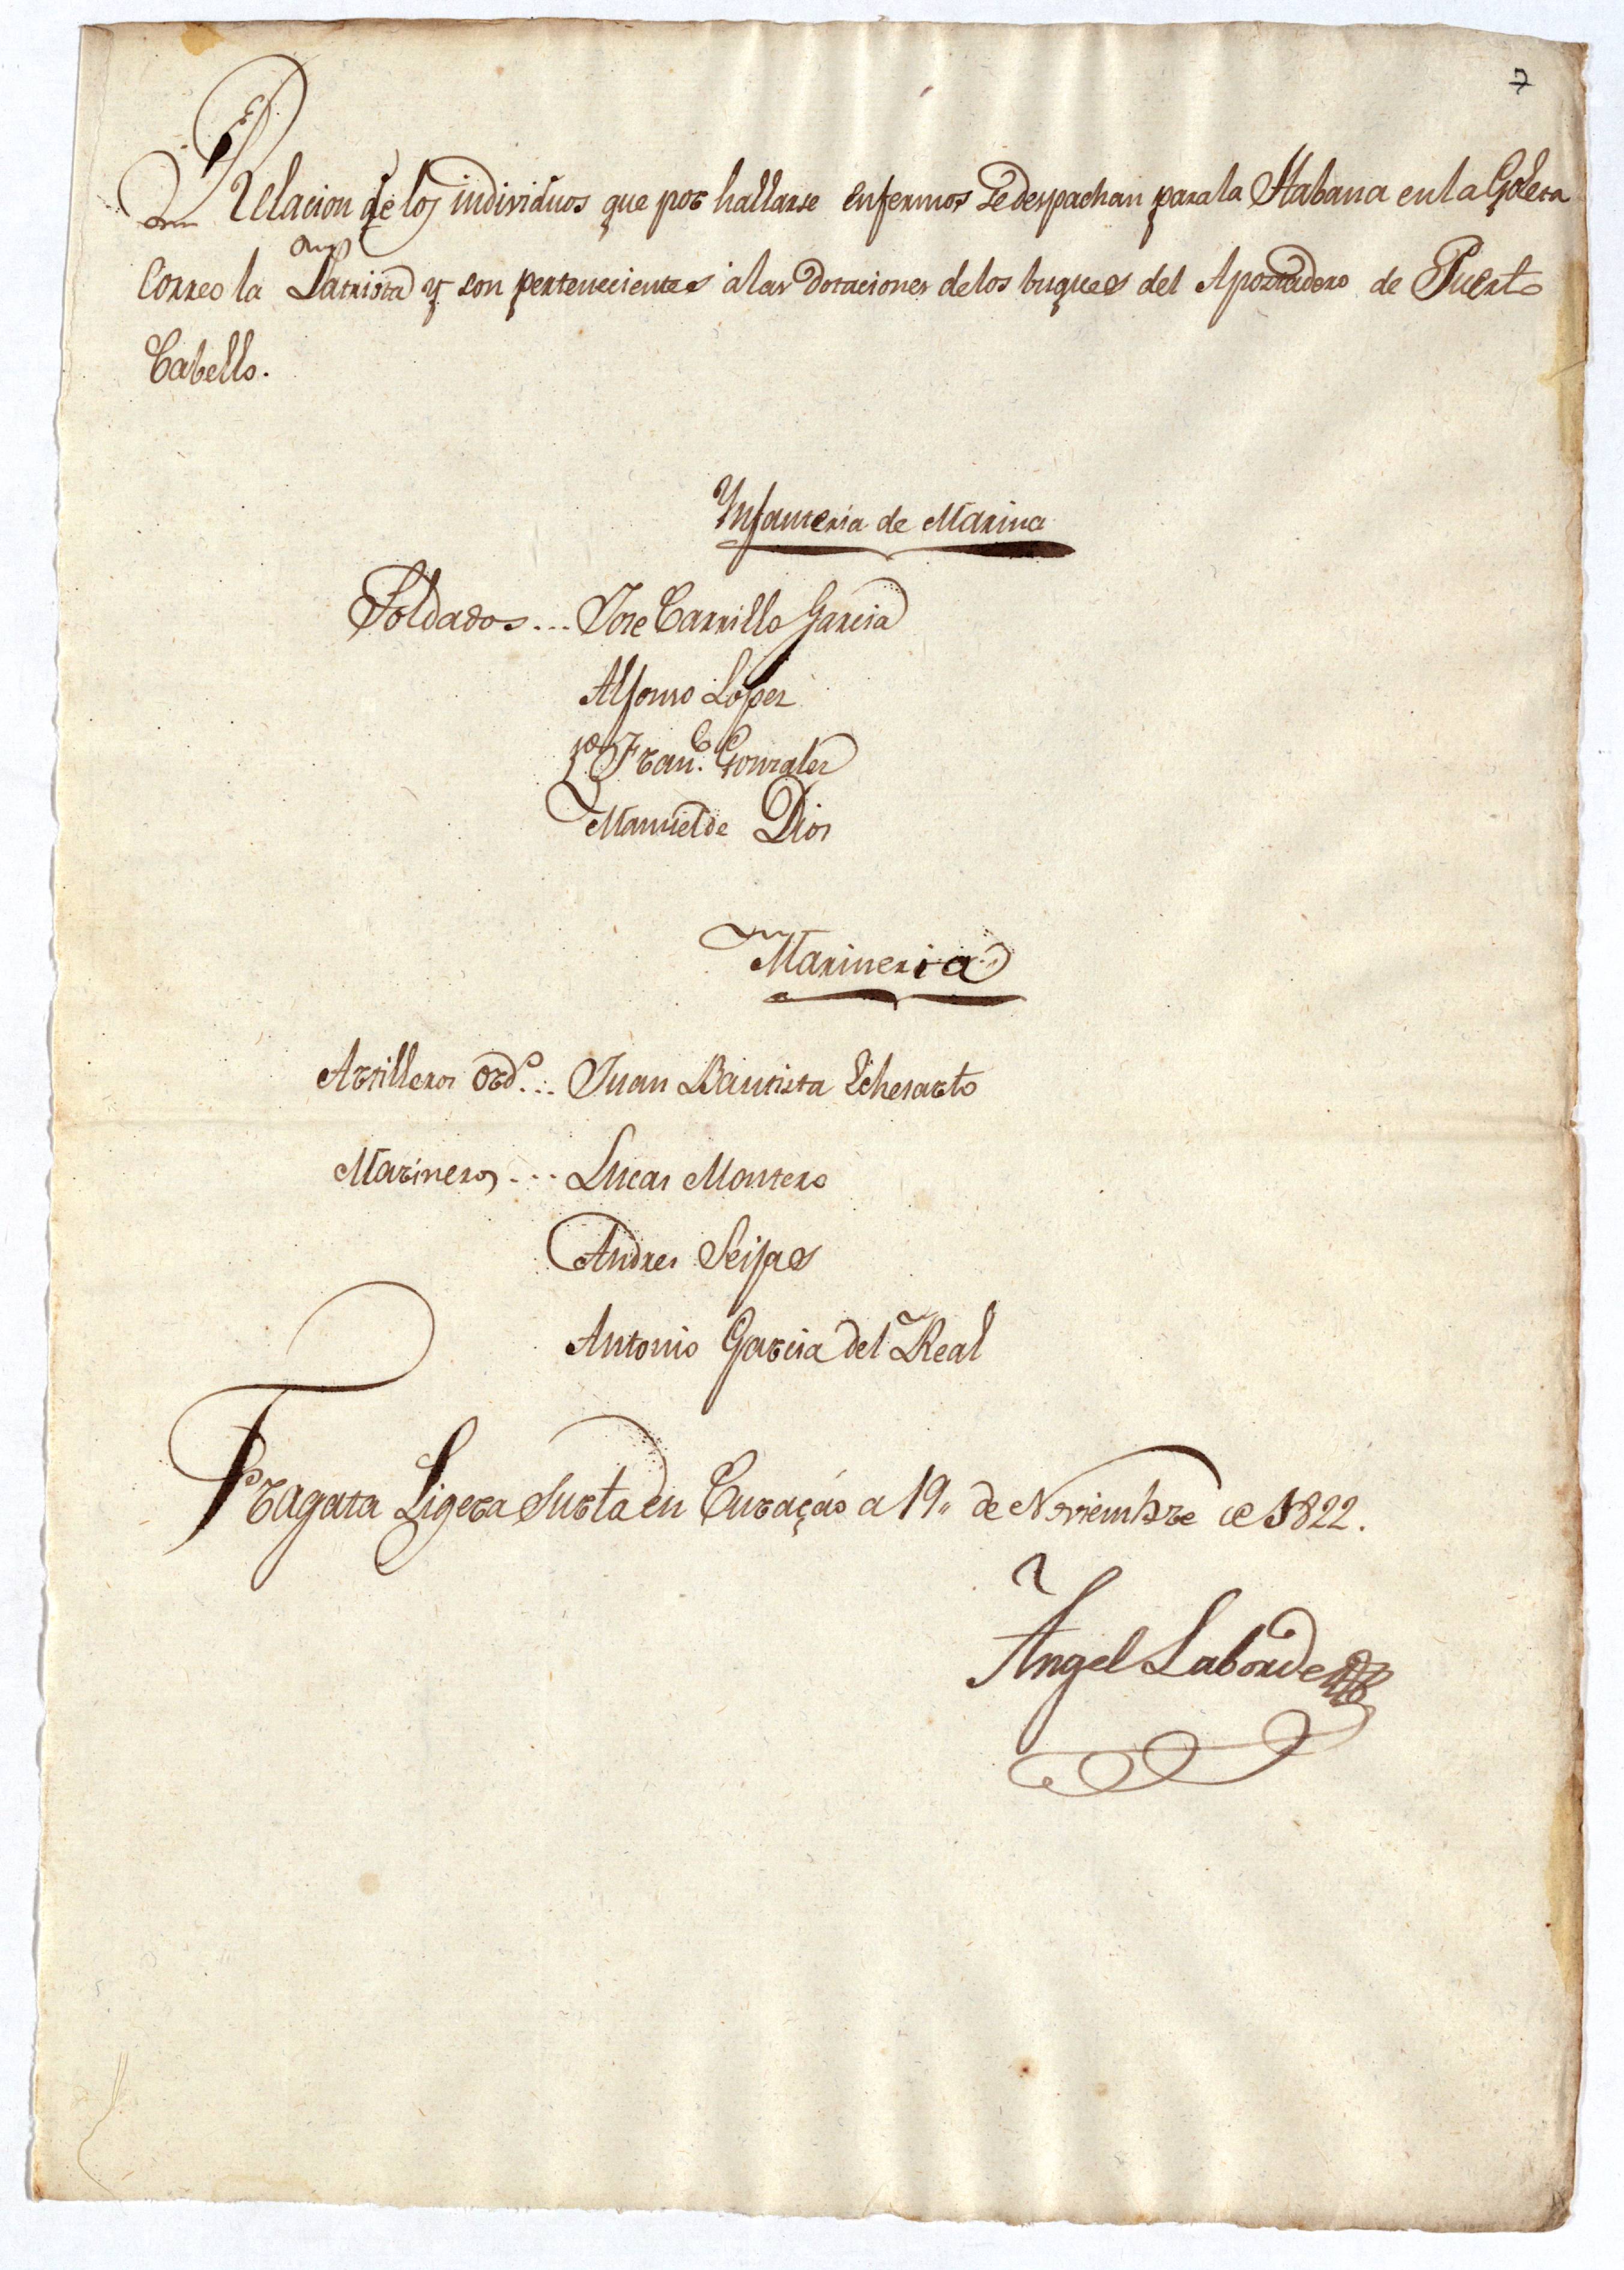 7
Relacion de los individuos que por hallarse enfermos se despachan para la Habana en la Goleta
Correo la Patriota y son pertenecientes a las dotaciones de los buques del Apostadero de Puerto
Cabello.
Ynfanteria de Marina
Soldados... Jose Carrillo Garcia
Alfonso Lopez
Franco. Gonzalez
Manuel de Dios
Marineria
Artilleros ord.s... Juan Bautista
Marineros... Lucas Montero
Andres Seijas
Antonio Garcia del Real
Fragata Ligera surta en Curaçáo a 19 de Noviembre de 1822.
Angel Laborde